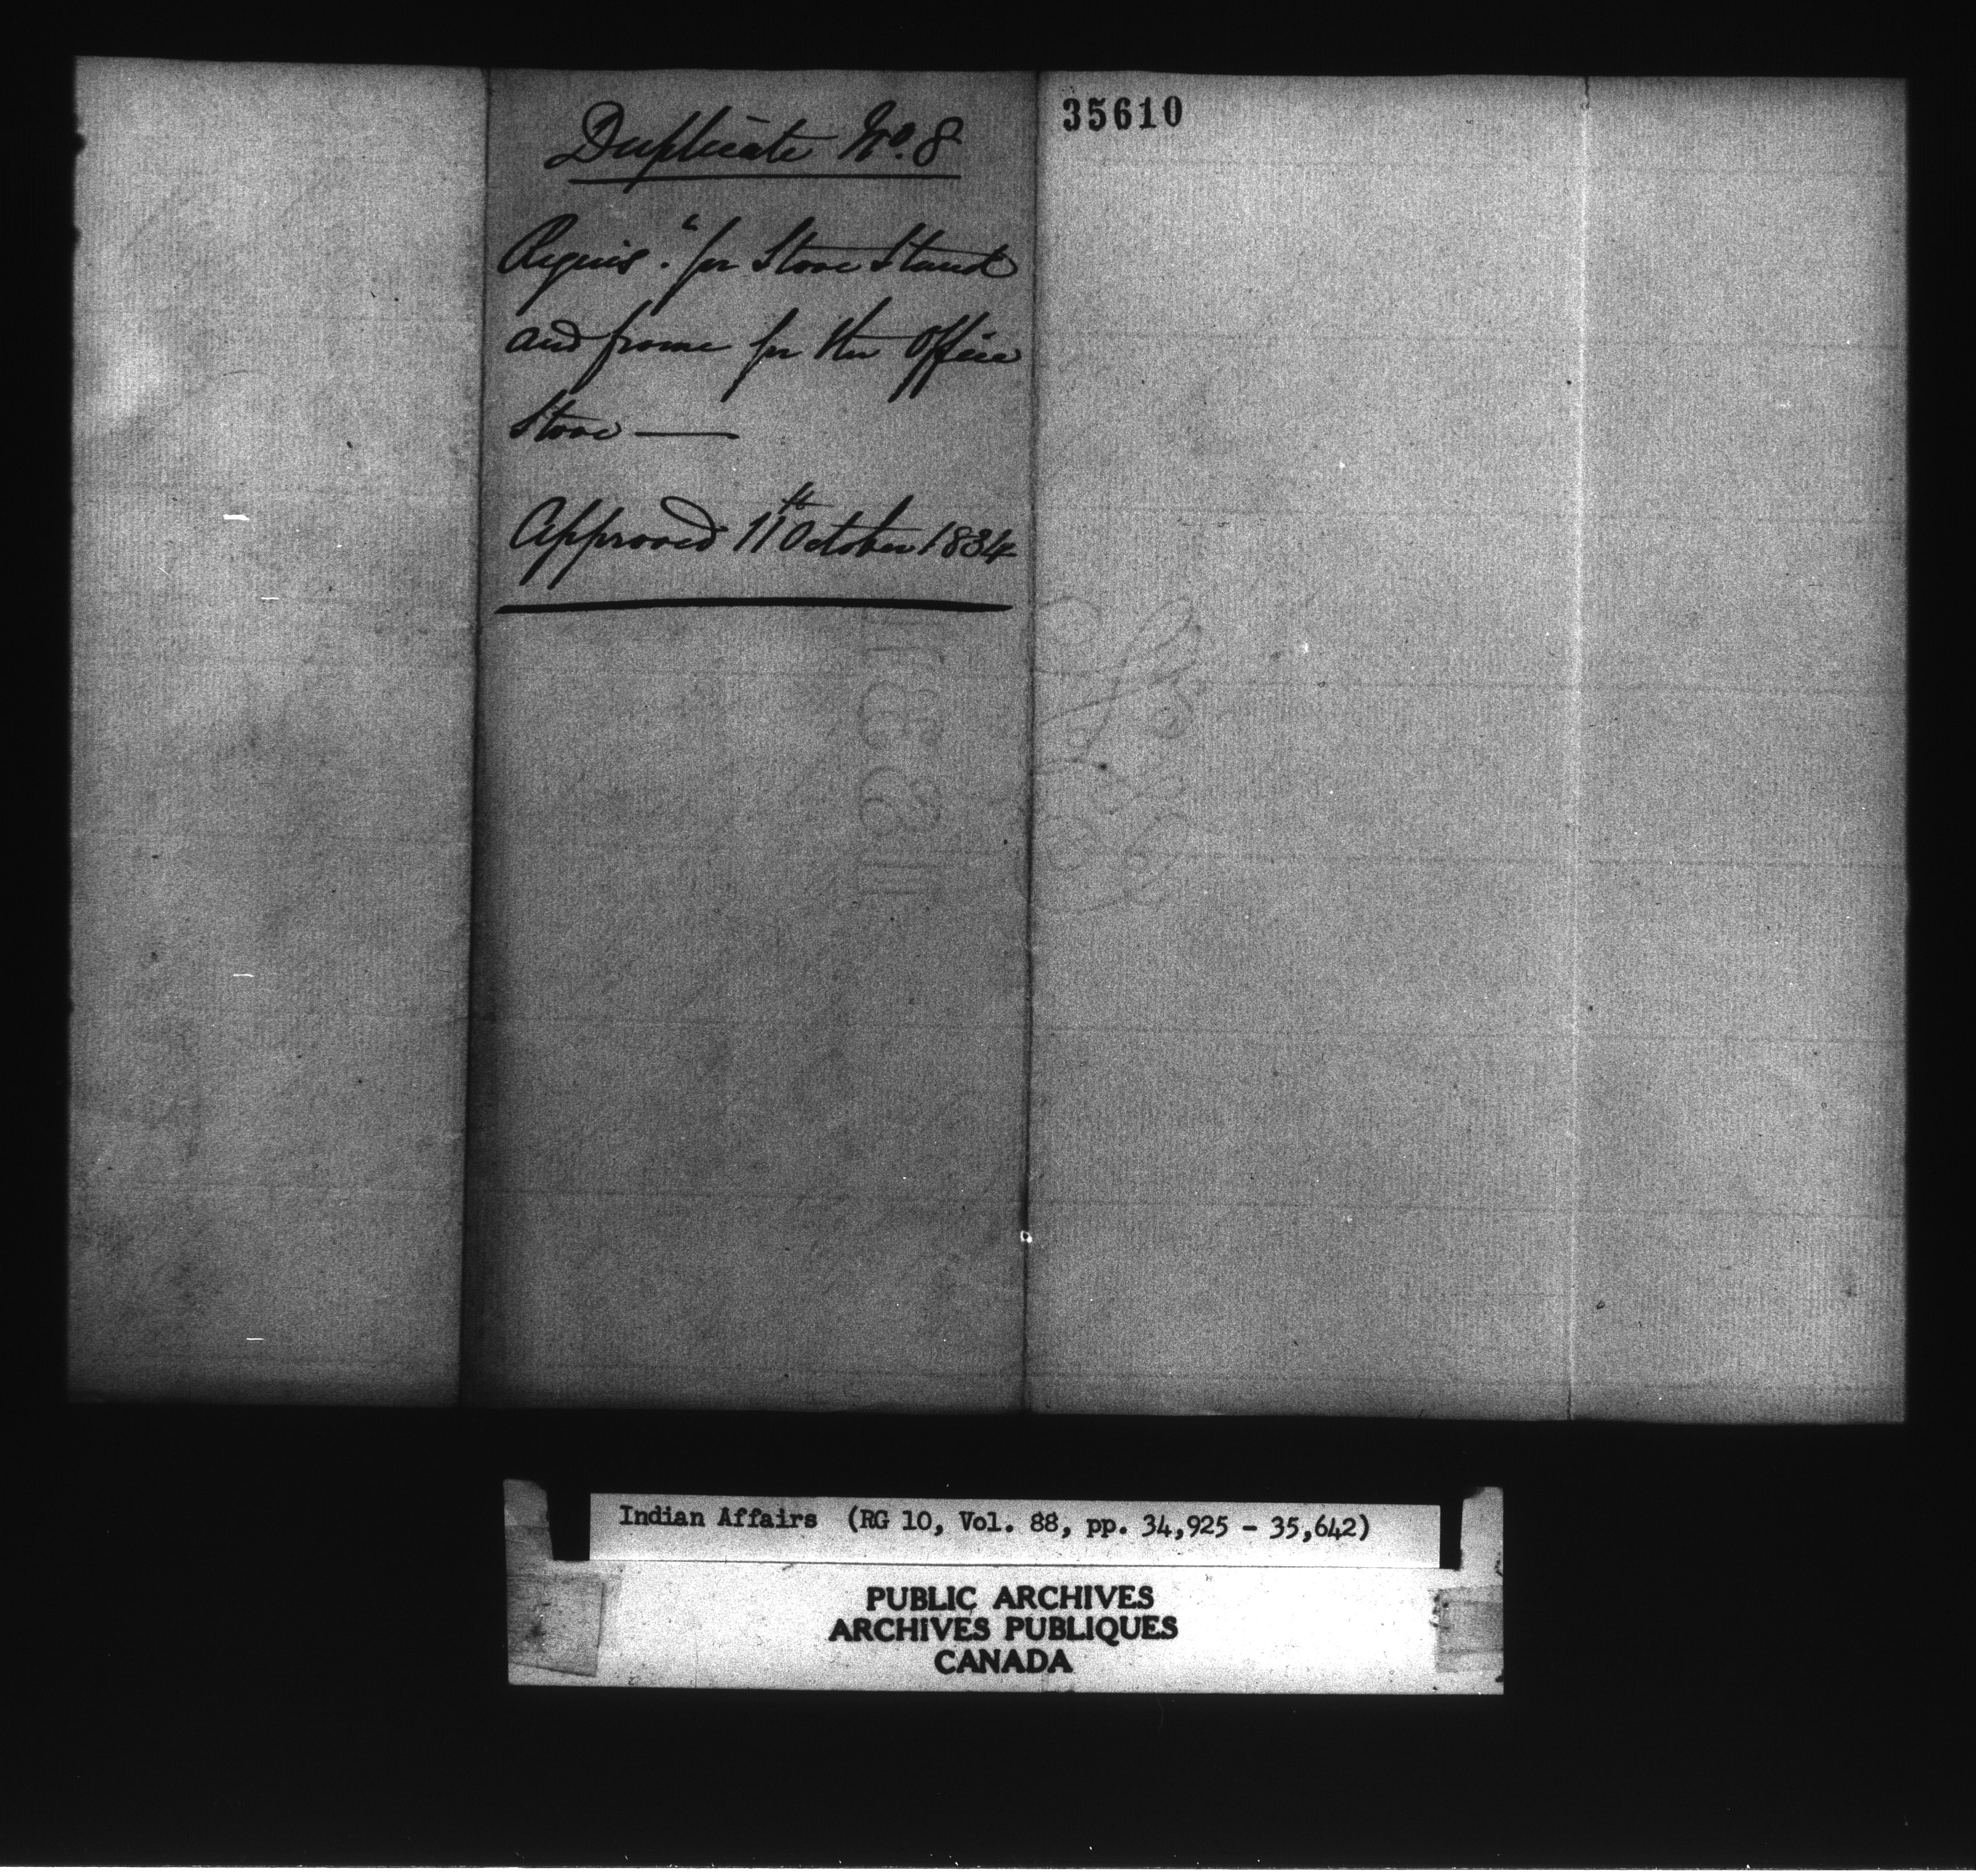 Duplicate No. 8
Requis.n for Stove Stand
and frame for the Office
Stove —
Approved 11th October 1834
35610
Indian Affairs (RG 10, Vol. 88, pp. 34,925 - 35,642)
PUBLIC ARCHIVES
ARCHIVES PUBLIQUES
CANADA